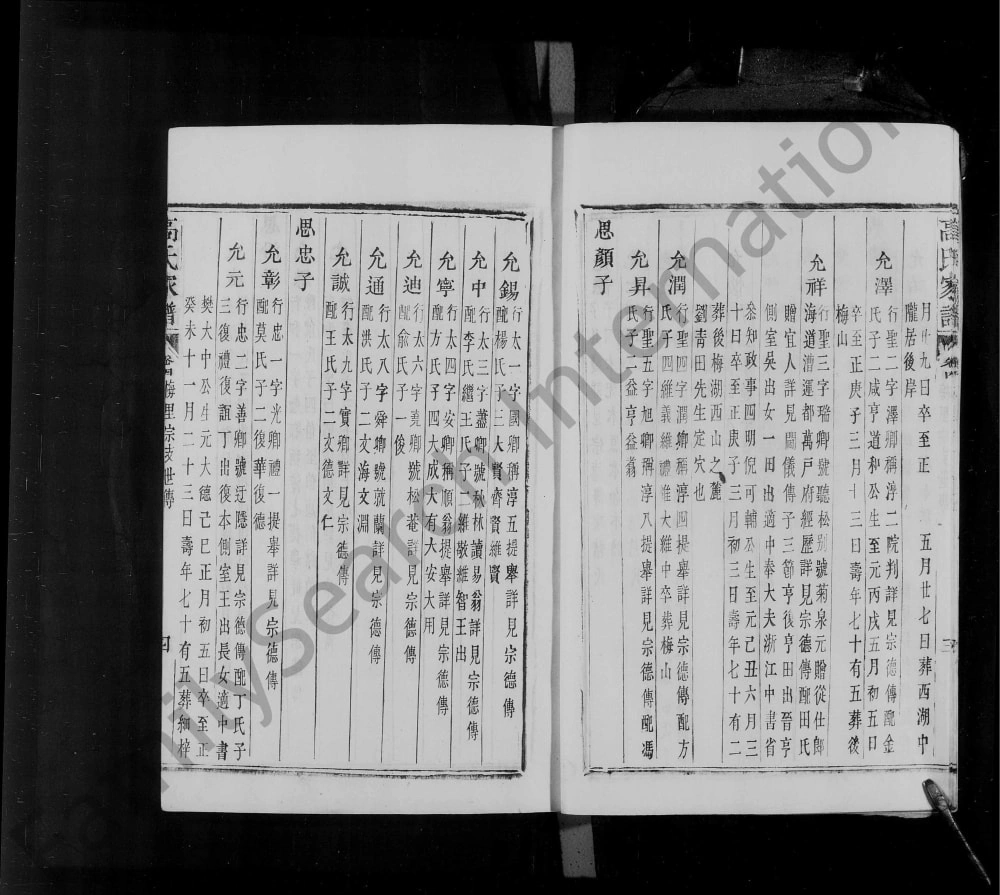 高氏家譜
三
月廿九日卒至正 年 五月廿七日葬西湖中
隴居後岸
允澤 行聖二字澤卿稱淳二院判詳見宗德傳配金
氏子二咸亨道和公生至元丙戌五月初五日
卒至正庚子三月十三日壽年七十有五葬後
梅山
允祥 行聖三字瑞卿號聽松别號菊泉元贈從仕郎
海道漕運都萬戸府經歷詳見宗德傳配田氏
贈宜人詳見閫儀傳子三節亨後亨田出晉亨
側室吳出女一田出適中奉大夫浙江中書省
叅知政事四明倪可輔公生至元己丑六月三
十日卒至正庚子三月初三日壽年七十有二
葬後梅湖西山之麓
劉青田先生定穴也
允潤 行聖四字潤卿稱淳四提舉詳見宗德傳配方
氏子四維義維禮維大維中卒葬梅山
允昇 行聖五字旭卿稱淳八提舉詳見宗德傳配馮
氏子二益亨益翁
思顏子
允錫 行太一字國卿稱淳五提舉詳見宗德傳
配楊氏子三大賢齊賢維賢
允中 行太三字藎卿號秋林讀易翁詳見宗德傳
配李氏繼王氏子二維敬維智王出
允寧 行太四字安卿稱順翁提舉詳見宗德傳
配方氏子四大成大有大安大用
允迪 行太六字羙卿號松菴詳見宗德傳
配俞氏子一俊
允通 行太八字舜卿號就蘭詳見宗德傳
配洪氏子二文海文淵
允誠 行太九字實卿詳見宗德傳
配王氏子二文德文仁
思忠子
允彰 行忠一字光卿禮一提舉詳見宗德傳
配莫氏子二復華復德
允元 行忠二字善卿號迂隱詳見宗德傳配丁氏子
三復禮復誼丁出復本側室王出長女適中書
樊大中公生元大德己巳正月初五日卒至正
癸未十一月二十三日壽年七十有五葬細梓
高氏家譜
梅里宗枝世傳
四